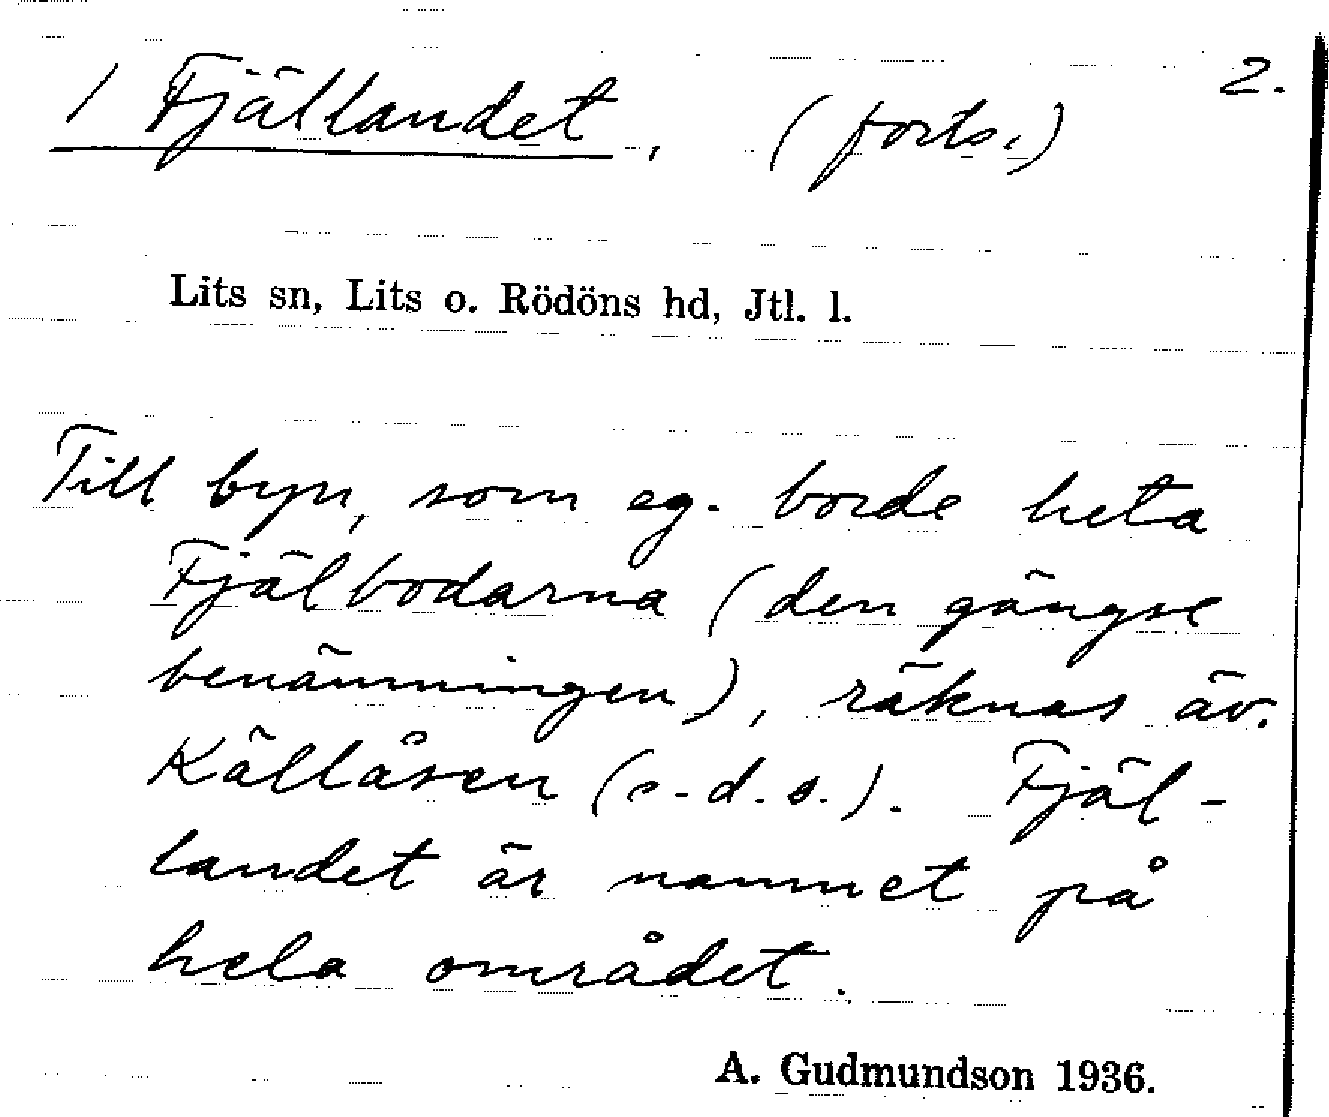 / Fjällandet, (forts.) 2.
Lits sn, Lits o. Rödöns hd, Jtl. l.
Till byn, som eg. borde heta
Fjälbodarna (den gängse
benämningen), räknas äv.
Källåsen (s.d.o.). Fjäl-
landet är namnet på
hela området.
A. Gudmundson 1936.